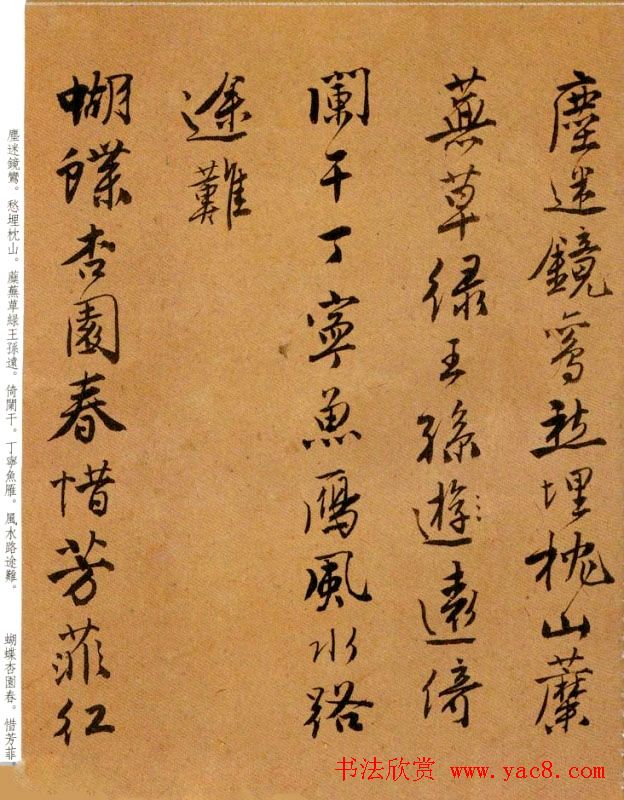 塵迷鏡鸞愁埋枕山蘪
蕪草緑王孫遊遠倚
闌干丁寧魚鴈風水路
途難
蝴蝶杏園春惜芳菲紅
塵迷鏡鸞。愁埋枕山。蘪蕪草綠王孫遠。倚闌干。丁寧魚雁。風水路途難。 蝴蝶杏園春。惜芳菲。
书法欣赏 www.yac8.com